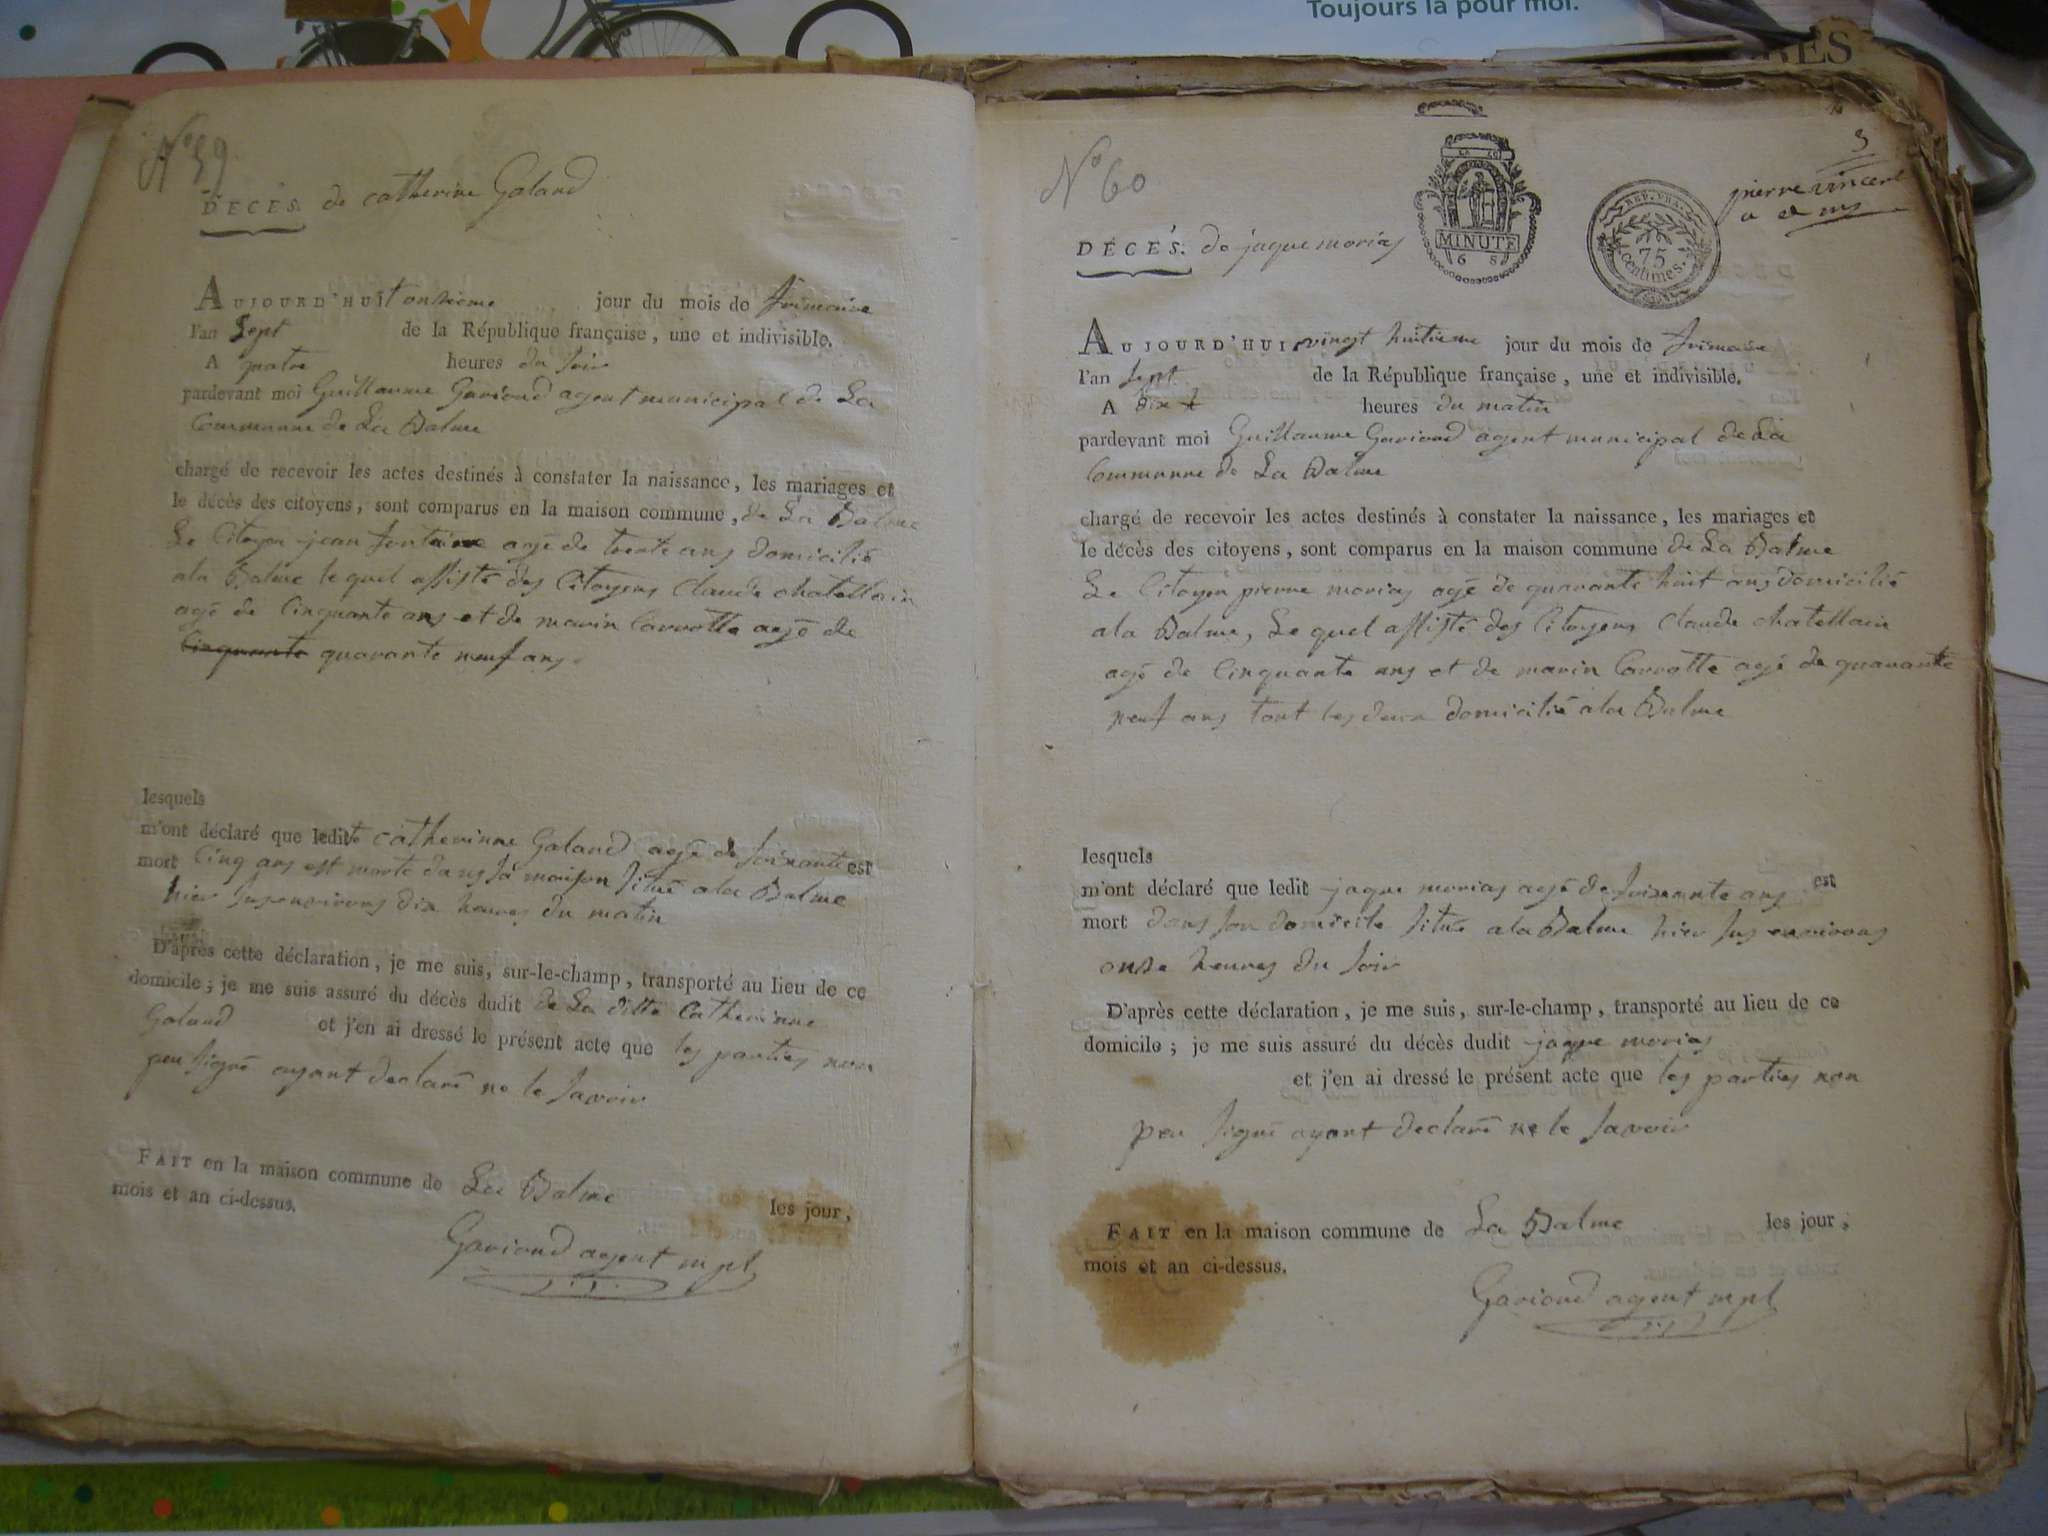 Toujours là pour moi.
RES
N° 59
DÉCÈS. de catherine Galand
AUJOURD'HUI onsieme jour du mois de frimaire
l'an Sept de la République française, une et indivisible.
A quatre heures du soir
pardevant moi Guillaume Gavioud agent municipal de La
Commune de La Balme
chargé de recevoir les actes destinés à constater la naissance, les mariages et
le décès des citoyens, sont comparus en la maison commune, de La Balme
Le Citoyen jean fontaine agé de trente ans domicilié
a la Balme lequel assisté des Citoyens Claude chatellain
agé de Cinquante ans et de marin Carrotte agé de
Cinquante quarante neuf ans
lesquels
m'ont déclaré que ledite catherinne Galand agé de soixante est
mort Cinq ans est morte dans sa maison situé a la Balme
hier sus environs dix heures du matin
D'après cette déclaration, je me suis, sur-le-champ, transporté au lieu de ce
domicile; je me suis assuré du décès dudit de La ditte Catherinne
Galand et j'en ai dressé le présent acte que les parties non
peu signé ayant declaré ne le savoir
FAIT en la maison commune de La Balme les jour,
mois et an ci-dessus.
Gavioud agent mpl
N° 60
3
pierre vincent
MINUTE
REP. FRA.
75
centimes.
DÉCÈS. de jaque morias
AUJOURD'HUI vingt huitieme jour du mois de frimaire
l'an sept de la République française, une et indivisible.
A dix heures du matin
pardevant moi Guillaume Gavioud agent municipal de La
Commune de La Balme
chargé de recevoir les actes destinés à constater la naissance, les mariages et
le décès des citoyens, sont comparus en la maison commune de La Balme
Le Citoyen pierre morias agé de quarante huit ans domicilié
a la Balme, Le quel assisté des Citoyens Claude chatellain
agé de Cinquante ans et de marin Carrotte agé de quarante
neuf ans tout les deux domicilié a la Balme
lesquels
m'ont déclaré que ledit jaque morias agé de soixante ans est
mort dans son domicile situé a la Balme hier sus environs
onse heures du soir
D'après cette déclaration, je me suis, sur-le-champ, transporté au lieu de ce
domicile; je me suis assuré du décès dudit jaque morias
et j'en ai dressé le présent acte que les parties non
peu signé ayant declaré ne le savoir
FAIT en la maison commune de La Balme les jour,
mois et an ci-dessus.
Gavioud agent mpl